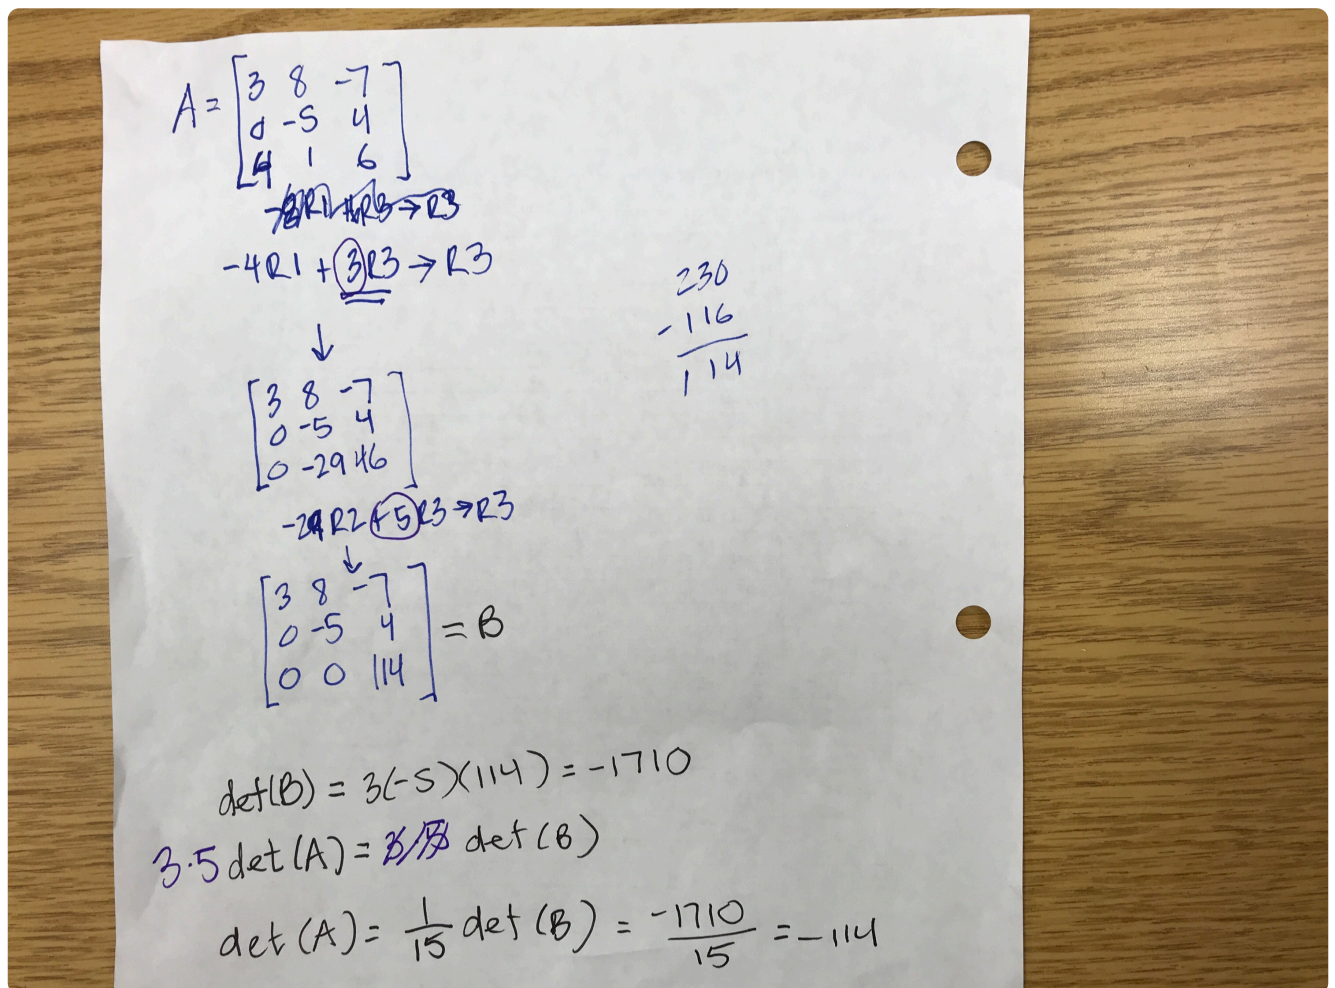 A = [3 8 -7
0 -5 4
4 1 6]
-4R1 + 3R3 → R3
↓
[3 8 -7
0 -5 4
0 -29 46]
-29R2 + 5R3 → R3
↓
[3 8 -7
0 -5 4
0 0 114] = B
230
- 116
114
det(B) = 3(-5)(114) = -1710
3·5 det(A) = det(B)
det(A) = 1/15 det(B) = -1710/15 = -114